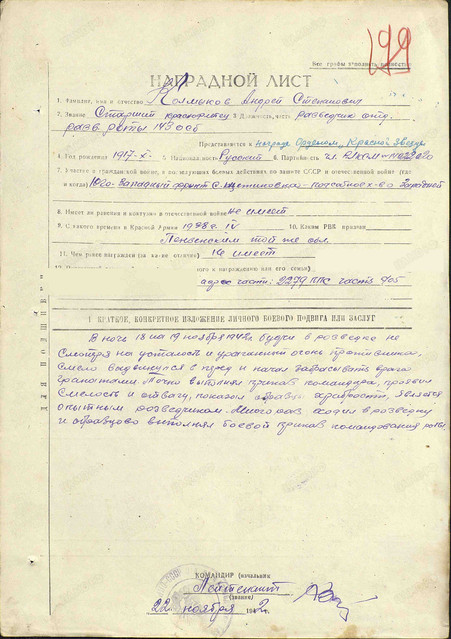 199
Все графы заполнять полностью
НАГРАДНОЙ ЛИСТ
1. Фамилия, имя и отчество Колмыков Андрей Степанович
2. Звание Старший краснофлотец 3. Должность, часть разведчик отд.
разв. роты 143 ооб
Представляется к награде Орденом „Красной Звезды"
4. Год рождения 1917-X 5. Национальность Русский 6. Партийность чл. ВЛКСМ
7. Участие в гражданской войне, в последующих боевых действиях по защите СССР и отечественной войне (где
и когда) Юго-Западный фронт
8. Имеет ли ранения и контузии в отечественной войне не имеет
9. С какого времени в Красной Армии 1938 г. IV 10. Каким РВК призван
Пензенским той же обл.
11. Чем ранее награжден (за какие отличия) не имеет
адрес части: 2279 ППС часть 905
I. КРАТКОЕ, КОНКРЕТНОЕ ИЗЛОЖЕНИЕ ЛИЧНОГО БОЕВОГО ПОДВИГА ИЛИ ЗАСЛУГ
В ночь 18 на 19 ноября 1942 г. будучи в разведке не
смотря на усталость и ураганный огонь противника,
смело выдвинулся в перед и начал забрасывать врага
гранатами. Точно выполняя приказ командира, проявил
смелость и отвагу, показал образцы храбрости, является
опытным разведчиком. Много раз ходил в разведку
и образцово выполнял боевой приказ командования роты.
ДЛЯ ПОДШИВКИ
КОМАНДИР (начальник
Лейтенант
(звание)
22 ноября 1942 г.